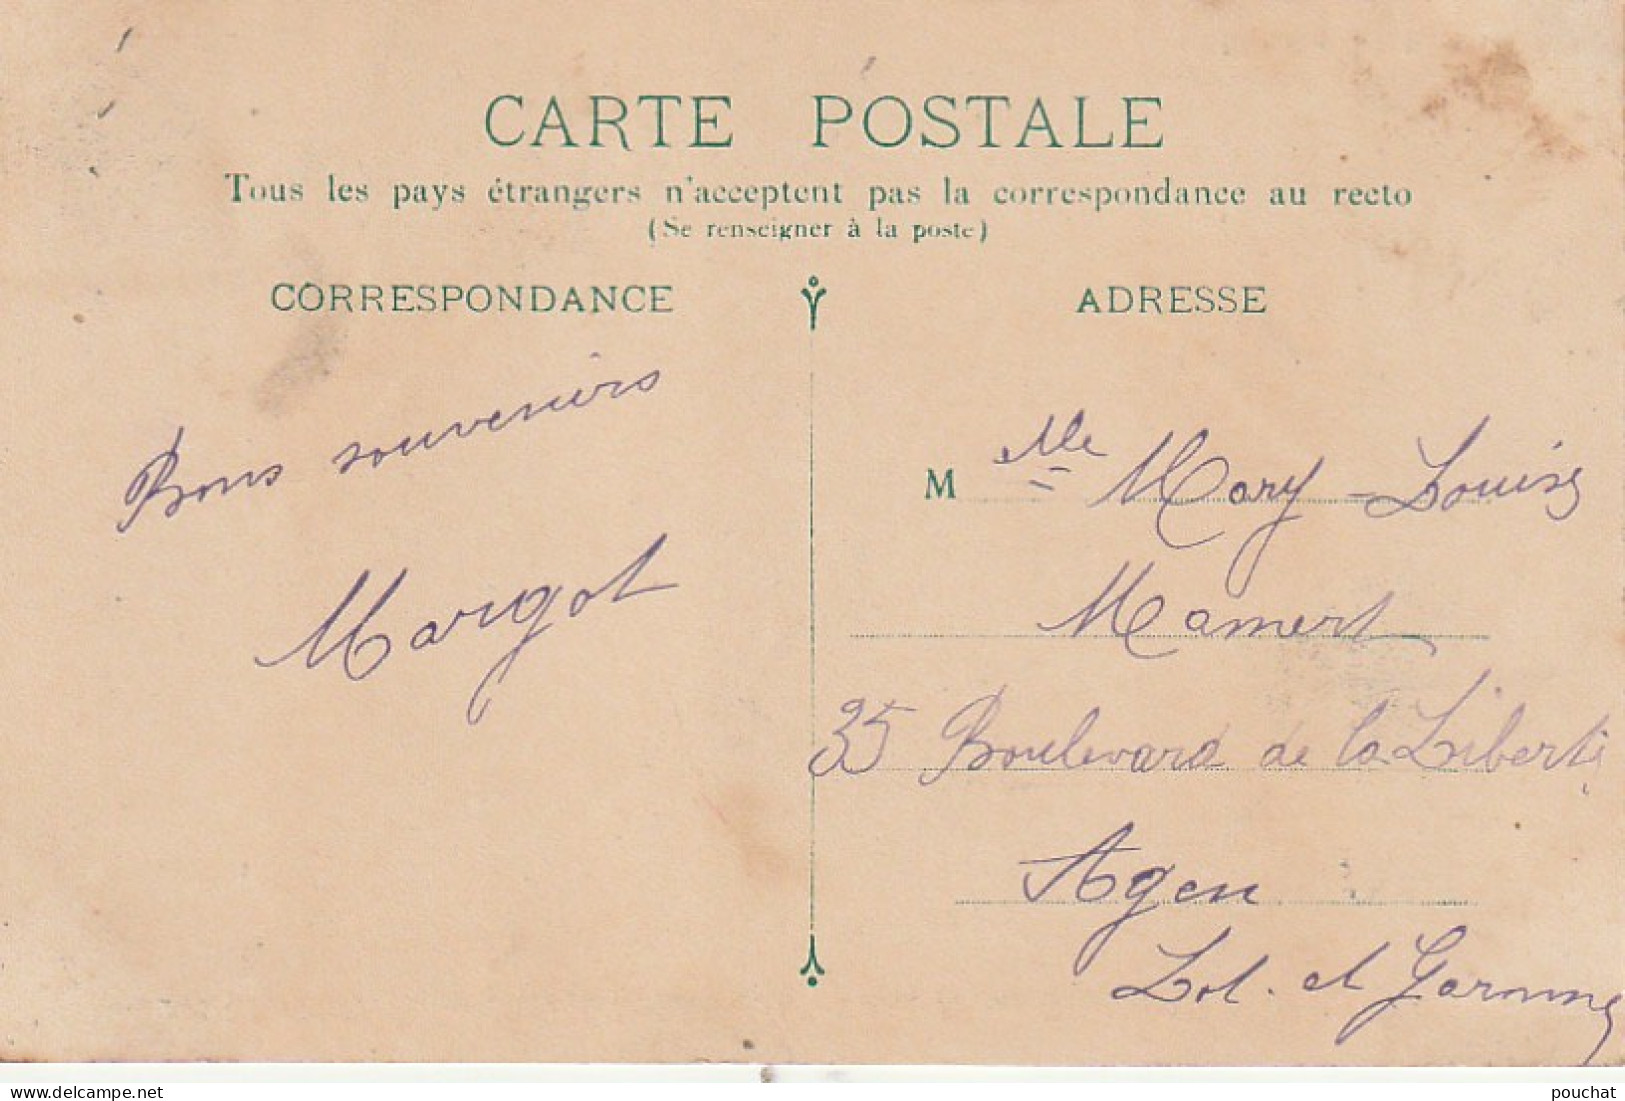 CARTE POSTALE
Tous les pays étrangers n'acceptent pas la correspondance au recto
(Se renseigner à la poste)
CORRESPONDANCE
Bons souvenirs
Margot
ADRESSE
M Mlle Mary-Louise
Mamert
35 Boulevard de la Liberté
Agen
Lot. et Garonne
delcampe.net
pouchat